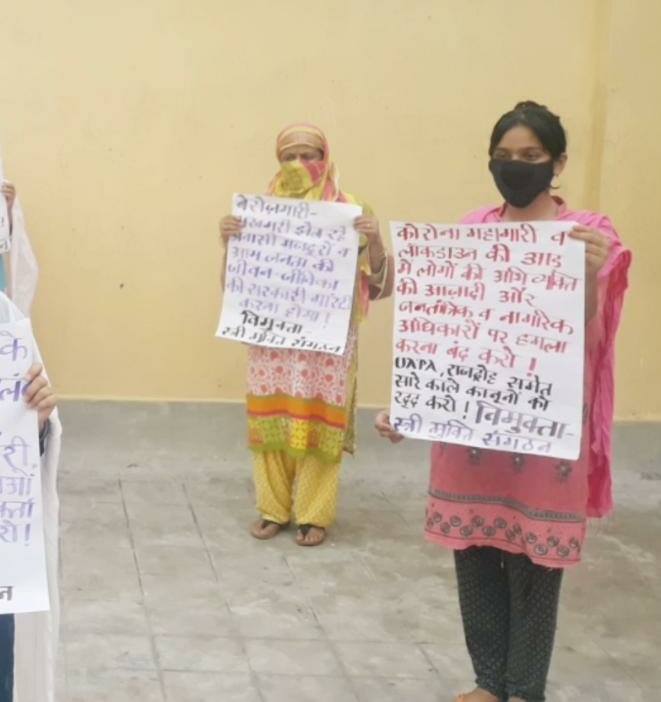 बेरोज़गारी-
भुखमरी झेल रहे
प्रवासी मजदूरों व
आम जनता की
जीवन-जीविका
की सरकारी गारंटी
करना होगा!
विमुक्ता-
स्त्री मुक्ति संगठन
कोरोना महामारी व
लॉकडाउन की आड़
में लोगों की अभिव्यक्ति
की आज़ादी और
जनतांत्रिक व नागरिक
अधिकारों पर हमला
करना बंद करो!
UAPA, राजद्रोह समेत
सारे काले कानूनों को
रद्द करो! विमुक्ता-
स्त्री मुक्ति संगठन
के